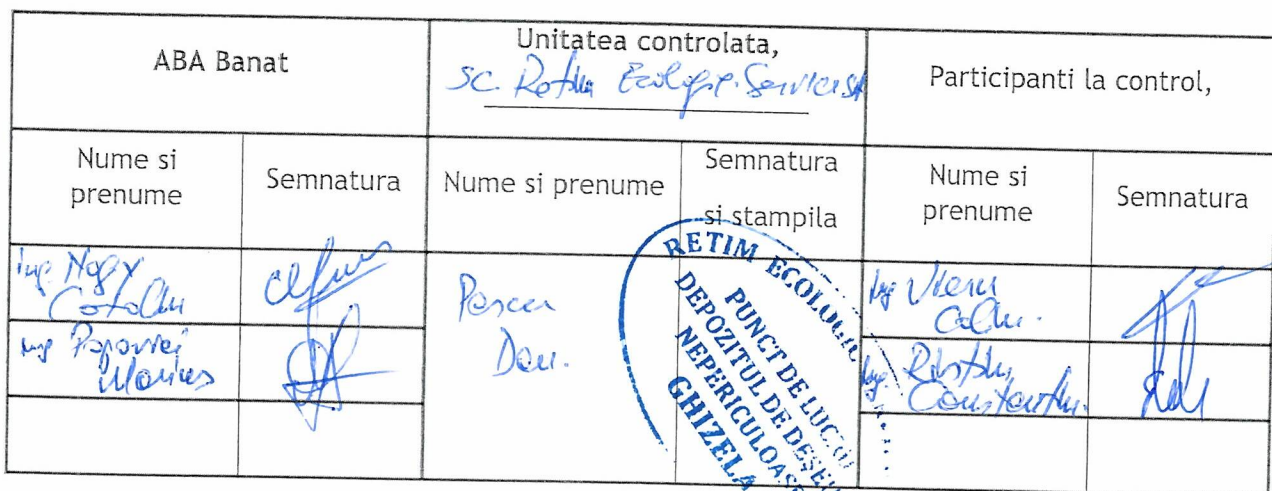 ABA Banat
Unitatea controlata,
SC. Retim Ecologic Service SA
Participanti la control,
Nume si
prenume
Semnatura
Nume si prenume
Semnatura
si stampila
Nume si
prenume
Semnatura
ing Nagy
Catalin
ing Popovici
Marius
Dan.
RETIM ECOLOGIC
PUNCT DE LUCRU
DEPOZITUL DE DEȘEU
NEPERICULOASE
GHIZELA
ing
Calin.
ing.
Constantin.